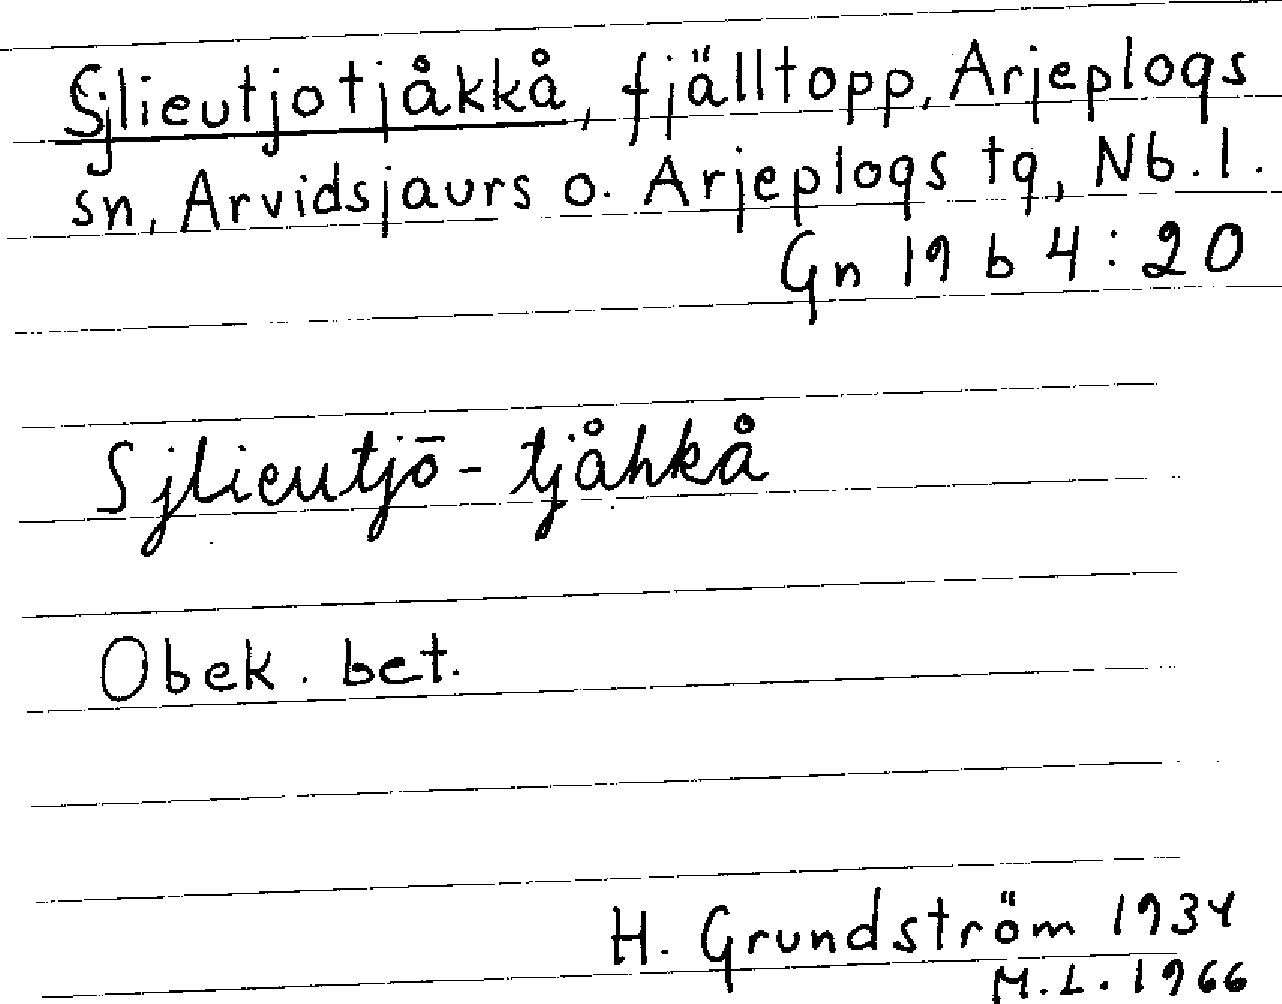 Sjlieutjotjåkkå, fjälltopp, Arjeplogs
sn, Arvidsjaurs o. Arjeplogs tg, Nb. l.
Gn 19 b 4:20
Sjlieutjō-tjåhkå
Obek. bet.
H. Grundström 1934
M.L. 1966